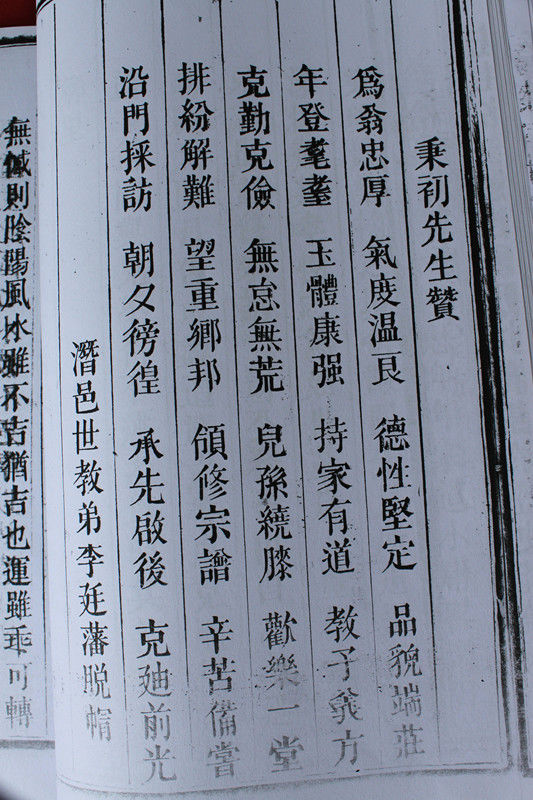 秉初先生贊
爲翁忠厚 氣度温良 德性堅定 品貌端莊
年登耄耋 玉體康强 持家有道 教子義方
克勤克儉 無怠無荒 兒孫繞膝 歡樂一堂
排紛解難 望重鄉邦 領修宗譜 辛苦備嘗
沿門採訪 朝夕徬徨 承先啟後 克廸前光
潛邑世教弟李廷藩脱帽
無憾則陰陽風水雖不吉猶吉也運雖乖可轉